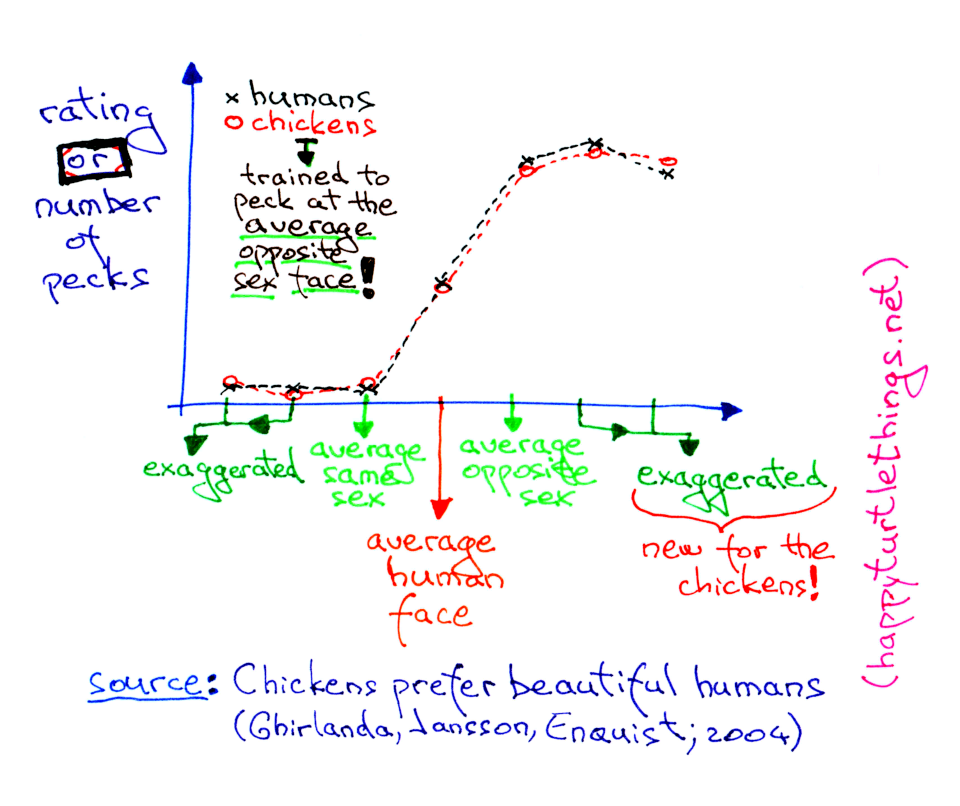 rating
or
number
of
pecks
x humans
o chickens
trained to
peck at the
average
opposite
sex face!
exaggerated
average
same
sex
average
human
face
average
opposite
sex
exaggerated
new for the
chickens!
(happyturtlethings.net)
source: Chickens prefer beautiful humans
(Ghirlanda, Jansson, Enquist; 2004)